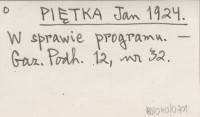 PIĘTKA Jan 1924.
W sprawie programu. —
Gaz. Podh. 12, nr 32.